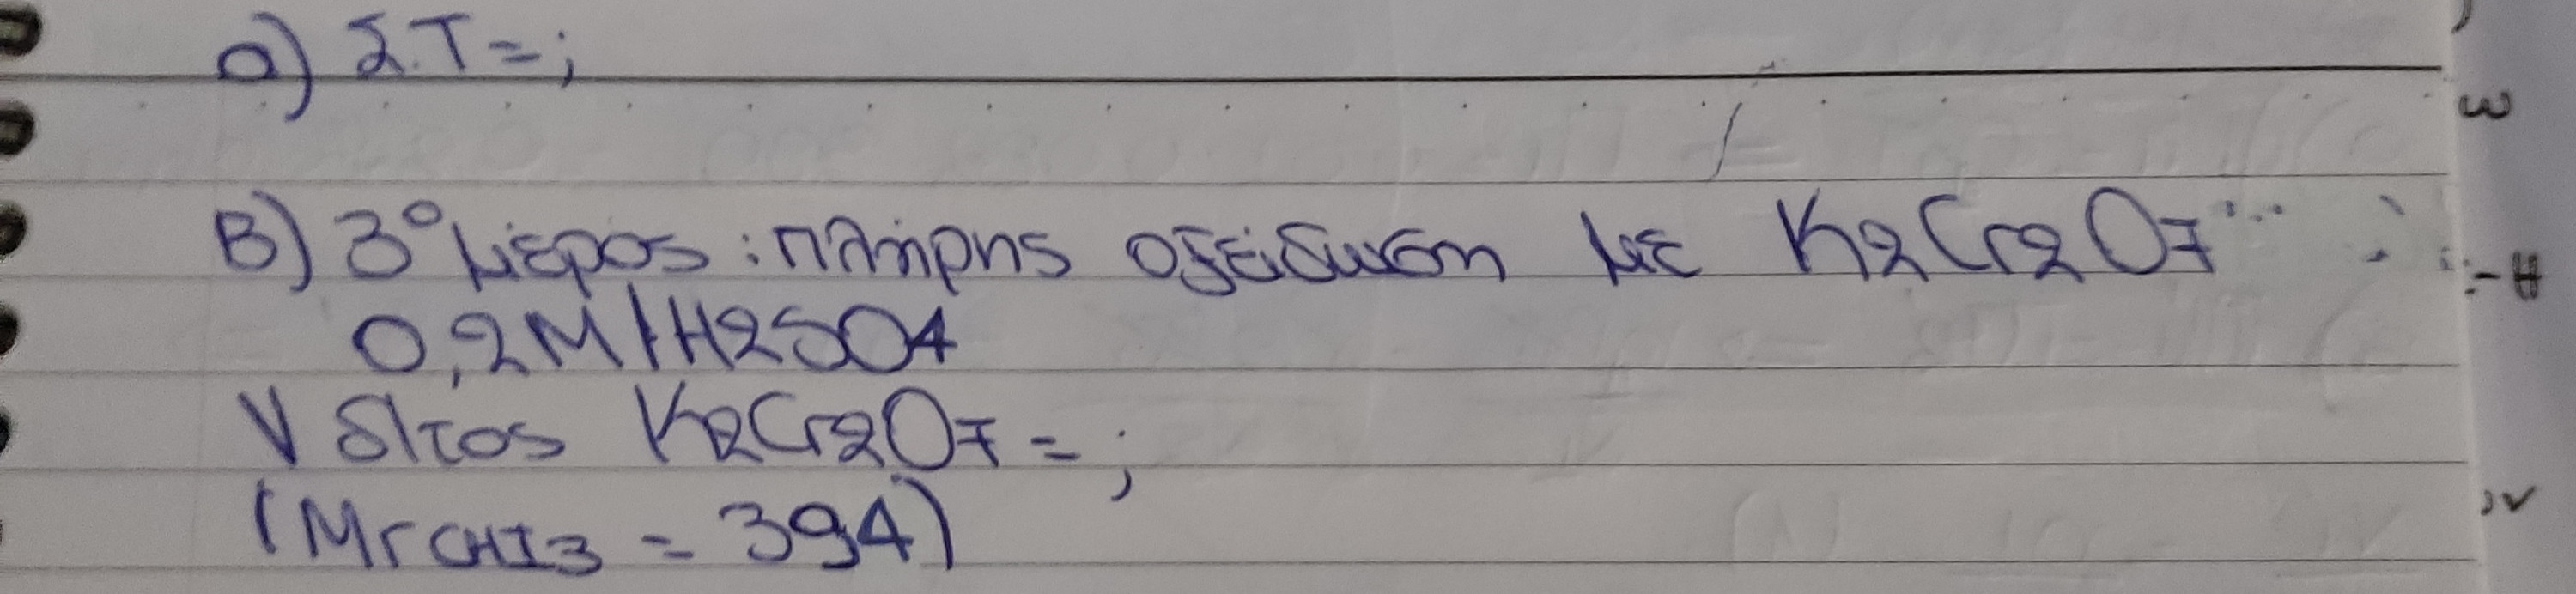 α) Σ.Τ = ;
Β) 3° μέρος : πλήρης οξείδωση με K2Cr2O7
0,2M/H2SO4
V δ/τος K2Cr2O7 = ;
(Mr CHI3 = 394)